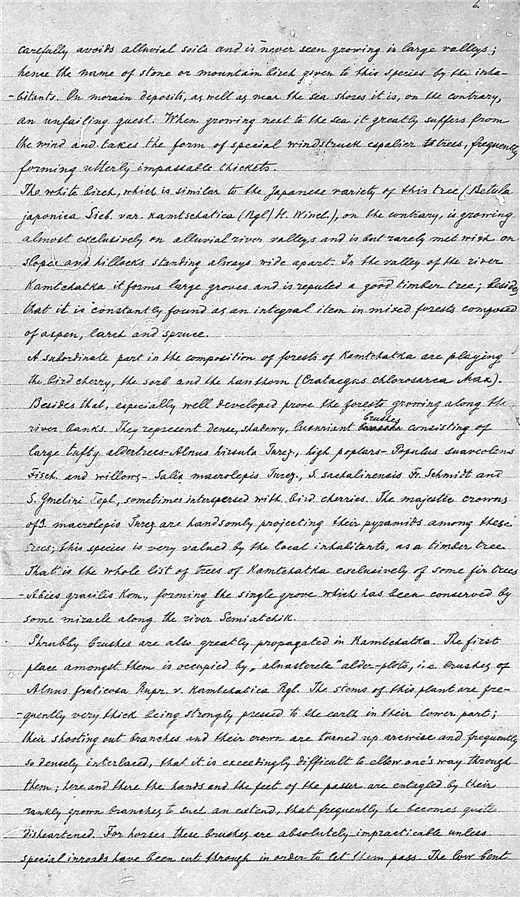 6.
carefully avoids alluvial soils and is never seen growing in large valleys;
hence the name of stone or mountain birch given to this species by the inha-
-bitants. On morain deposits, as well as near the sea shores it is, on the contrary,
an unfailing guest. When growing next to the sea it greatly suffers from
the wind and takes the form of special windstruck espalier trees, frequently
forming utterly impassable thickets.
The white birch, which is similar to the Japanese variety of this tree (Betula
japonica Sieb. var. kamtschatica (Rgl) H. Winkl.), on the contrary, is growing
almost exclusively on alluvial river valleys and is but rarely met with on
slopes and hillocks standing always wide apart. In the valley of the river
Kamtchatka it forms large groves and is reputed a good timber tree; besides
that it is constantly found as an integral item in mixed forests composed
of aspen, larch and spruce.
A subordinate part in the composition of forests of Kamtchatka are playing
the bird cherry, the sorb and the hawthorn (Crataegus chlorosarca Max.).
Besides that, especially well developed prove the forests growing along the
river banks. They represent dense, shadowy, luxuriant brushes consisting of
large tufty aldertrees - Alnus hirsuta Turcz, high poplars - Populus suaveolens
Fisch. and willows - Salix macrolepis Turcz., S. sachalinensis Fr. Schmidt and
S. Gmelini Pall, sometimes interspersed with bird cherries. The majestic crowns
of S. macrolepis Turcz are handsomly projecting their pyramids among these
trees; this species is very valued by the local inhabitants, as a timber tree
That is the whole list of trees of Kamtchatka exclusively of some fir trees
- Abies gracilis Kom., forming the single grove which has been conserved by
some miracle along the river Semiatchik.
Shrubby brushes are also greatly propagated in Kamtchatka. The first
place amongst them is occupied by "alnasterete" alder-plots, i.e. brushes of
Alnus fruticosa Rupr. v. Kamtchatica Rgl. The stems of this plant are fre-
-quently very thick being strongly pressed to the earth in their lower part;
their shooting out branches and their crown are turned up arcwise and frequently
so densely interlaced, that it is exceedingly difficult to ellow one's way through
them; here and there the hands and the feet of the passer are entagled by their
rankly grown branches to such an extend, that frequently he becomes quite
disheartened. For horses these brushes are absolutely impracticable unless
special inroads have been cut through in order to let them pass. The low bent